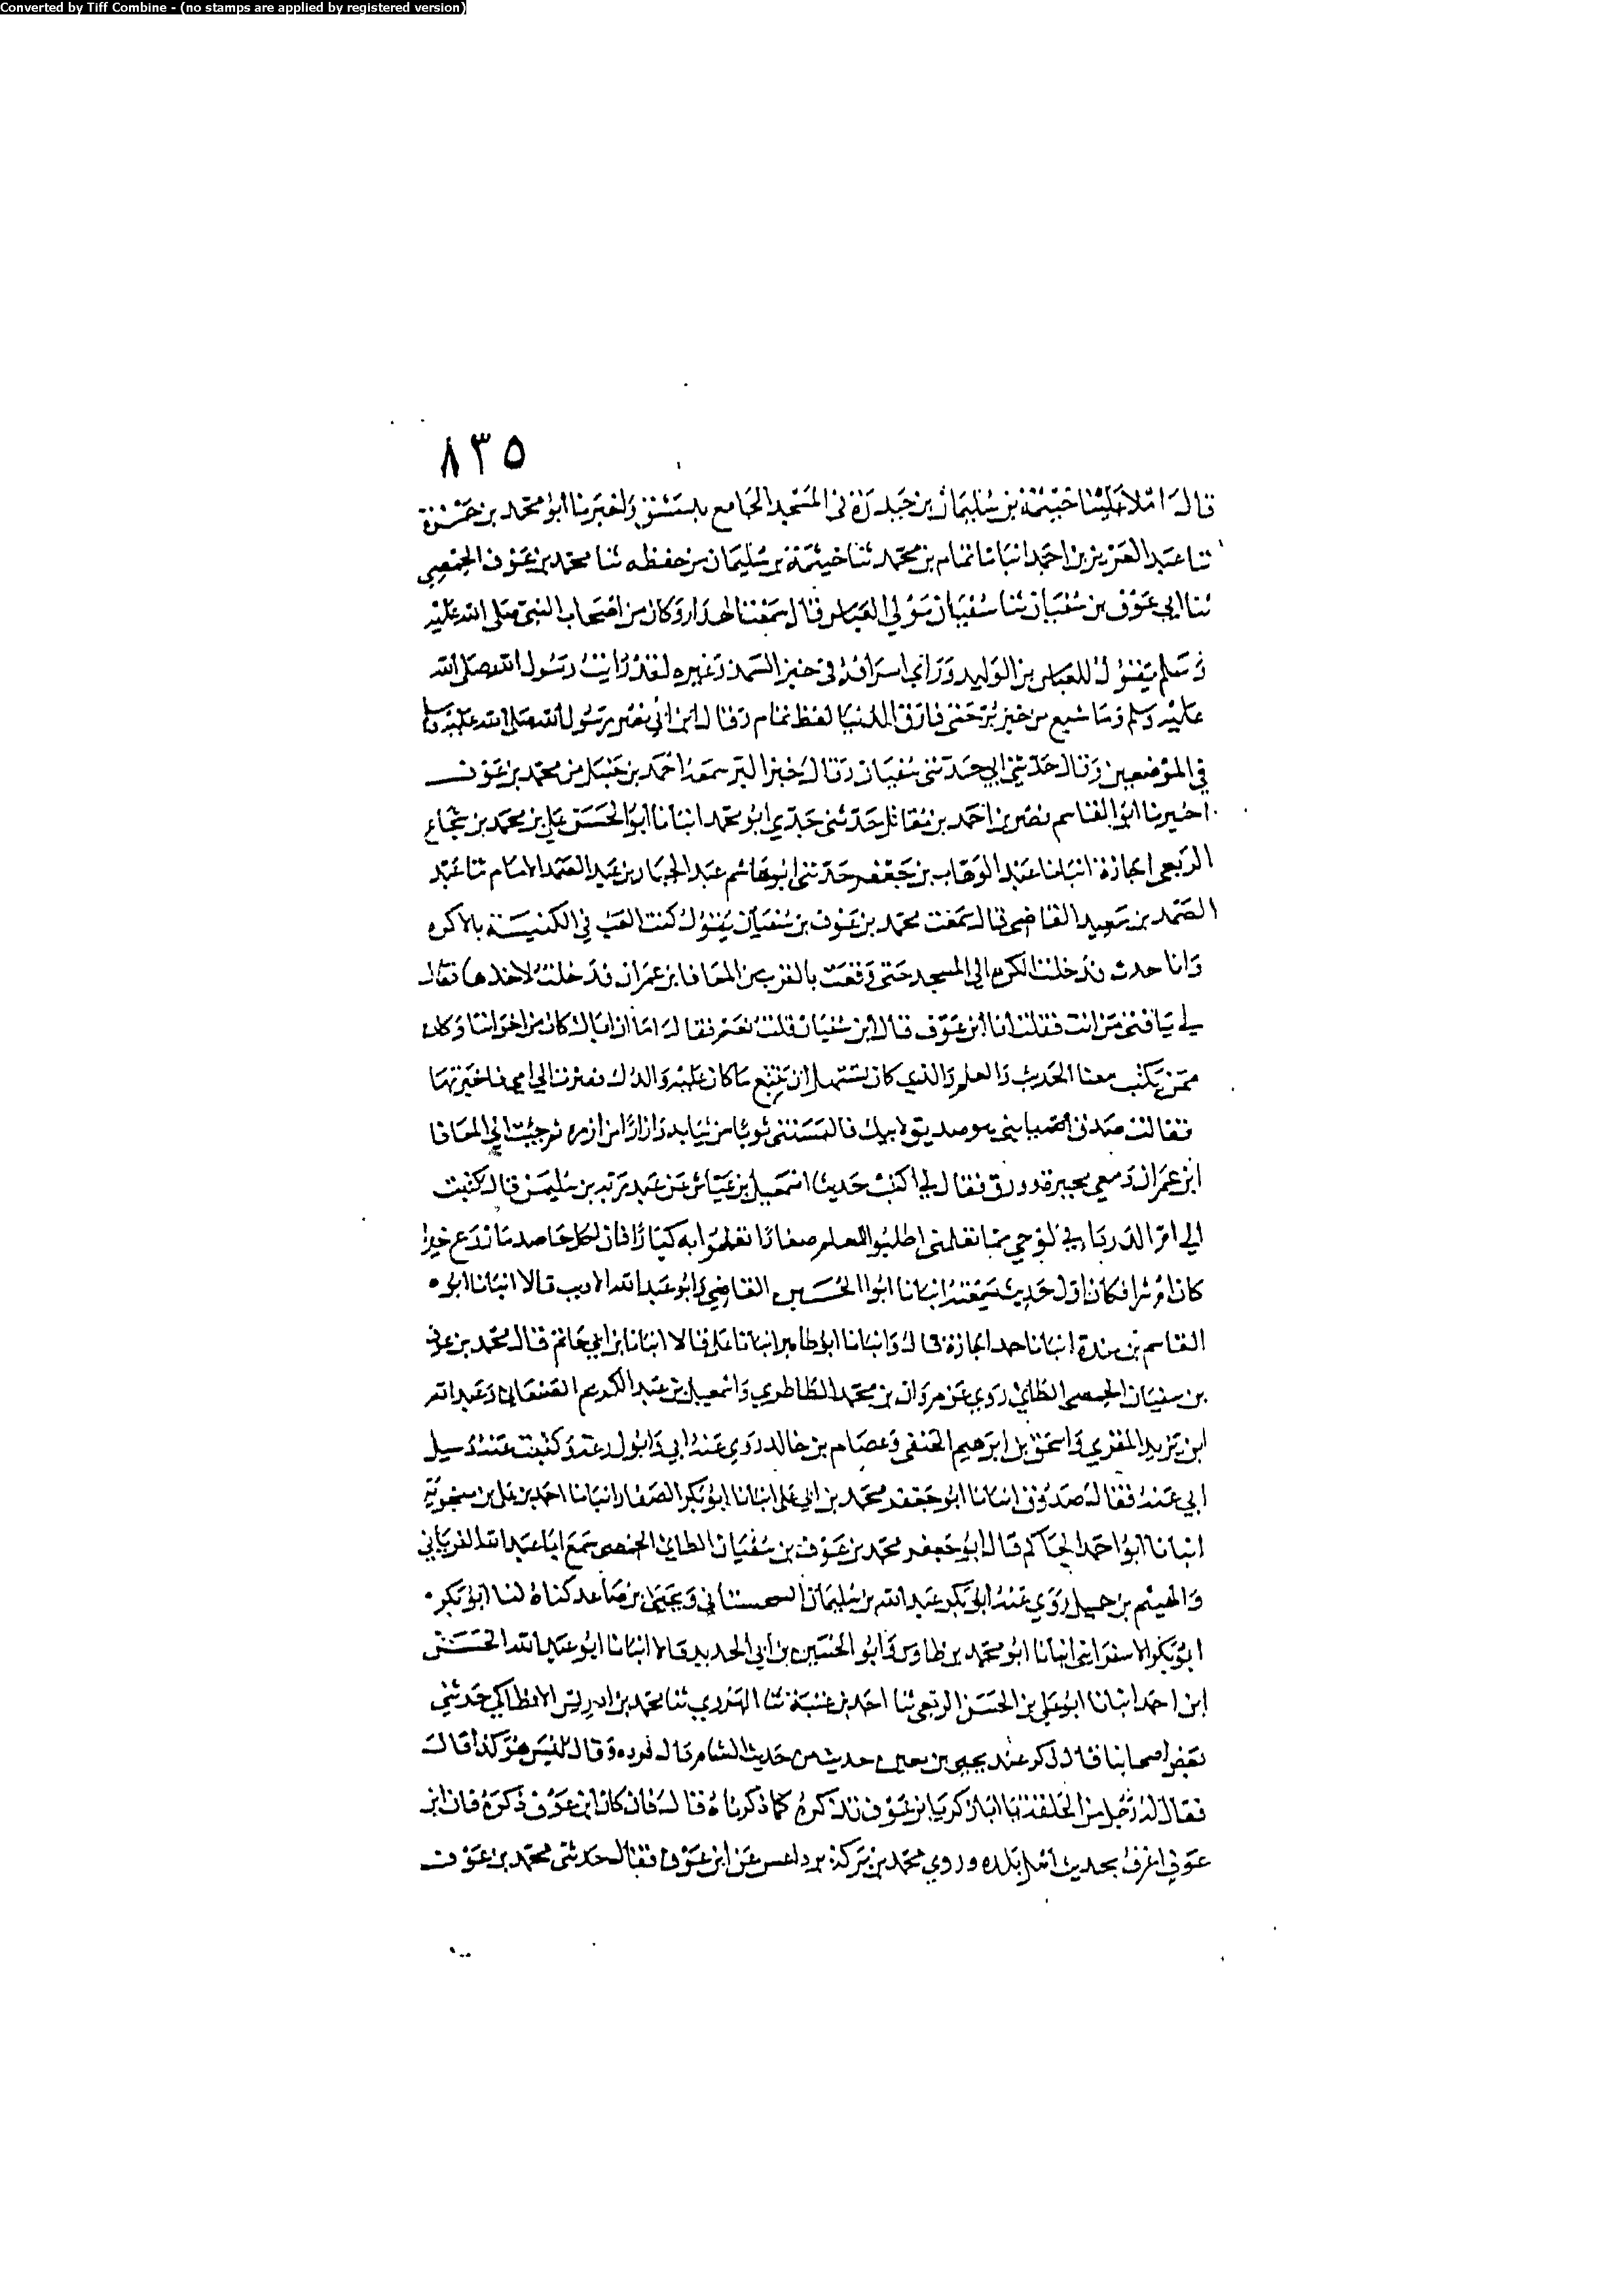 Converted by Tiff Combine - (no stamps are applied by registered version)
٨٣٥
قال املا علينا خيثمة بن سليمان بن حيدرة في المسجد الجامع بدمشق واخبرنا ابو محمد بن حمزة
ثنا عبد العزيز بن احمد انبانا تمام بن محمد ثنا خيثمة بن سليمان من حفظه ثنا محمد بن عوف الحمصي
ثنا ابي عوف بن سفيان ثنا سفيان مولي العباس قال سمعت الهدار وكان من اصحاب النبي صلى الله عليه
وسلم يقول للعباس بن الوليد وراي اسرافه في خبز السمذ وغيره لقد رايت رسول الله صلى الله
عليه وسلم وما شبع من خبز بر حتى فارق الدنيا لفظ تمام وقال ابن ابي نصر رسول الله صلى الله عليه وسلم
في الموضعين وقال حدثني ابي حدثني سفيان وقال خبز البر سمعه احمد بن حنبل من محمد بن عوف
اخبرنا ابو القاسم نصر بن احمد بن مقاتل حدثني جدي ابو محمد انبانا ابو الحسن علي بن محمد بن شجاع
الربعي اجازة انبانا عبد الوهاب بن جعفر حدثني ابو هاشم عبد الجبار بن عبد الصمد الامام ثنا عبد
الصمد بن سعيد القاضي قال سمعت محمد بن عوف بن سفيان يقول كنت العب في الكنيسة بالاكره
وانا حدث فدخلت الكره الي المسجد حتى وقعت بالقرب من المعافا بن عمران فدخلت لاخذها فقال
لي يا فتى من انت فقلت انا ابن عوف قال ابن سفيان قلت نعم فقال اما ان اباك كان من اخواننا وكان
ممن يكتب معنا الحديث والعلم والذي كان يشبهك ان تتبع ما كان عليه والدك فصرت الي امي فاخبرتها
فقالت صدق يا بني هو صديق لابيك فالبستني ثوبا من ثيابه وازارا من ازره ثم جئت الي المعافا
ابن عمران ومعي محبرة وورق فقال لي اكتب حدثنا اسمعيل بن عياش عن عبد ربه بن سليمن قال كتبت
الي ام الدرداء في لوحي مما تعلمني اطلبوا العلم صغارا تعملوا به كبارا فان لكل حاصد ما زرع خيرا
كان او شرا فكان اول حديث سمعته انبانا ابوا الحسين القاضي وابو عبد الله الاديب قالا انبانا ابو
القاسم بن مندة انبانا حمد اجازة قال وانبانا ابو طاهر انبانا علي قالا انبانا بن ابي حاتم قال محمد بن عوف
بن سفيان الحمصي الطائي روي عن مروان بن محمد الطاطري واسمعيل بن عبد الكريم الصنعاني وعبد الله
ابن يزيد المقري واسحق بن ابرهيم الحنفي وعصام بن خالد روي عنه ابي وابو زرعة وكتبت عنه وسيل
ابي عنه فقال صدوق انبانا ابو جعفر محمد بن ابي علي انبانا ابو بكر الصفار انبانا احمد بن علي بن منجويه
انبانا ابو احمد الحاكم قال ابو جعفر محمد بن عوف بن سفيان الطائي الحمصي سمع ابا عبد الله الفريابي
والهيثم بن جميل روي عنه ابو بكر عبد الله بن سليمان السجستاني ويحيى بن صاعد كناه لنا ابو بكر
ابو بكر الاسفراييني انبانا ابو محمد بن طاوس وابو الحسين بن ابي الحديد قالا انبانا ابو عبد الله الحسن
ابن احمد انبانا ابو علي بن الحسن الربعي ثنا احمد بن عتبة ثنا الهروي ثنا محمد بن ادريس الانطاكي حدثني
بعض اصحابنا قال ذكر عند يحيى بن معين حديث من حديث الشام قال فرده وقال ليس هو كذا قال
فقال له رجل من الحلقة يا ابا زكريا ابن عوف يذكره كما ذكرناه قال فان كان ابن عوف ذكره فان ابن
عوف اعرف بحديث اهل بلده وروي محمد بن بركة برداعس عن ابن عوف فقال حدثني محمد بن عوف